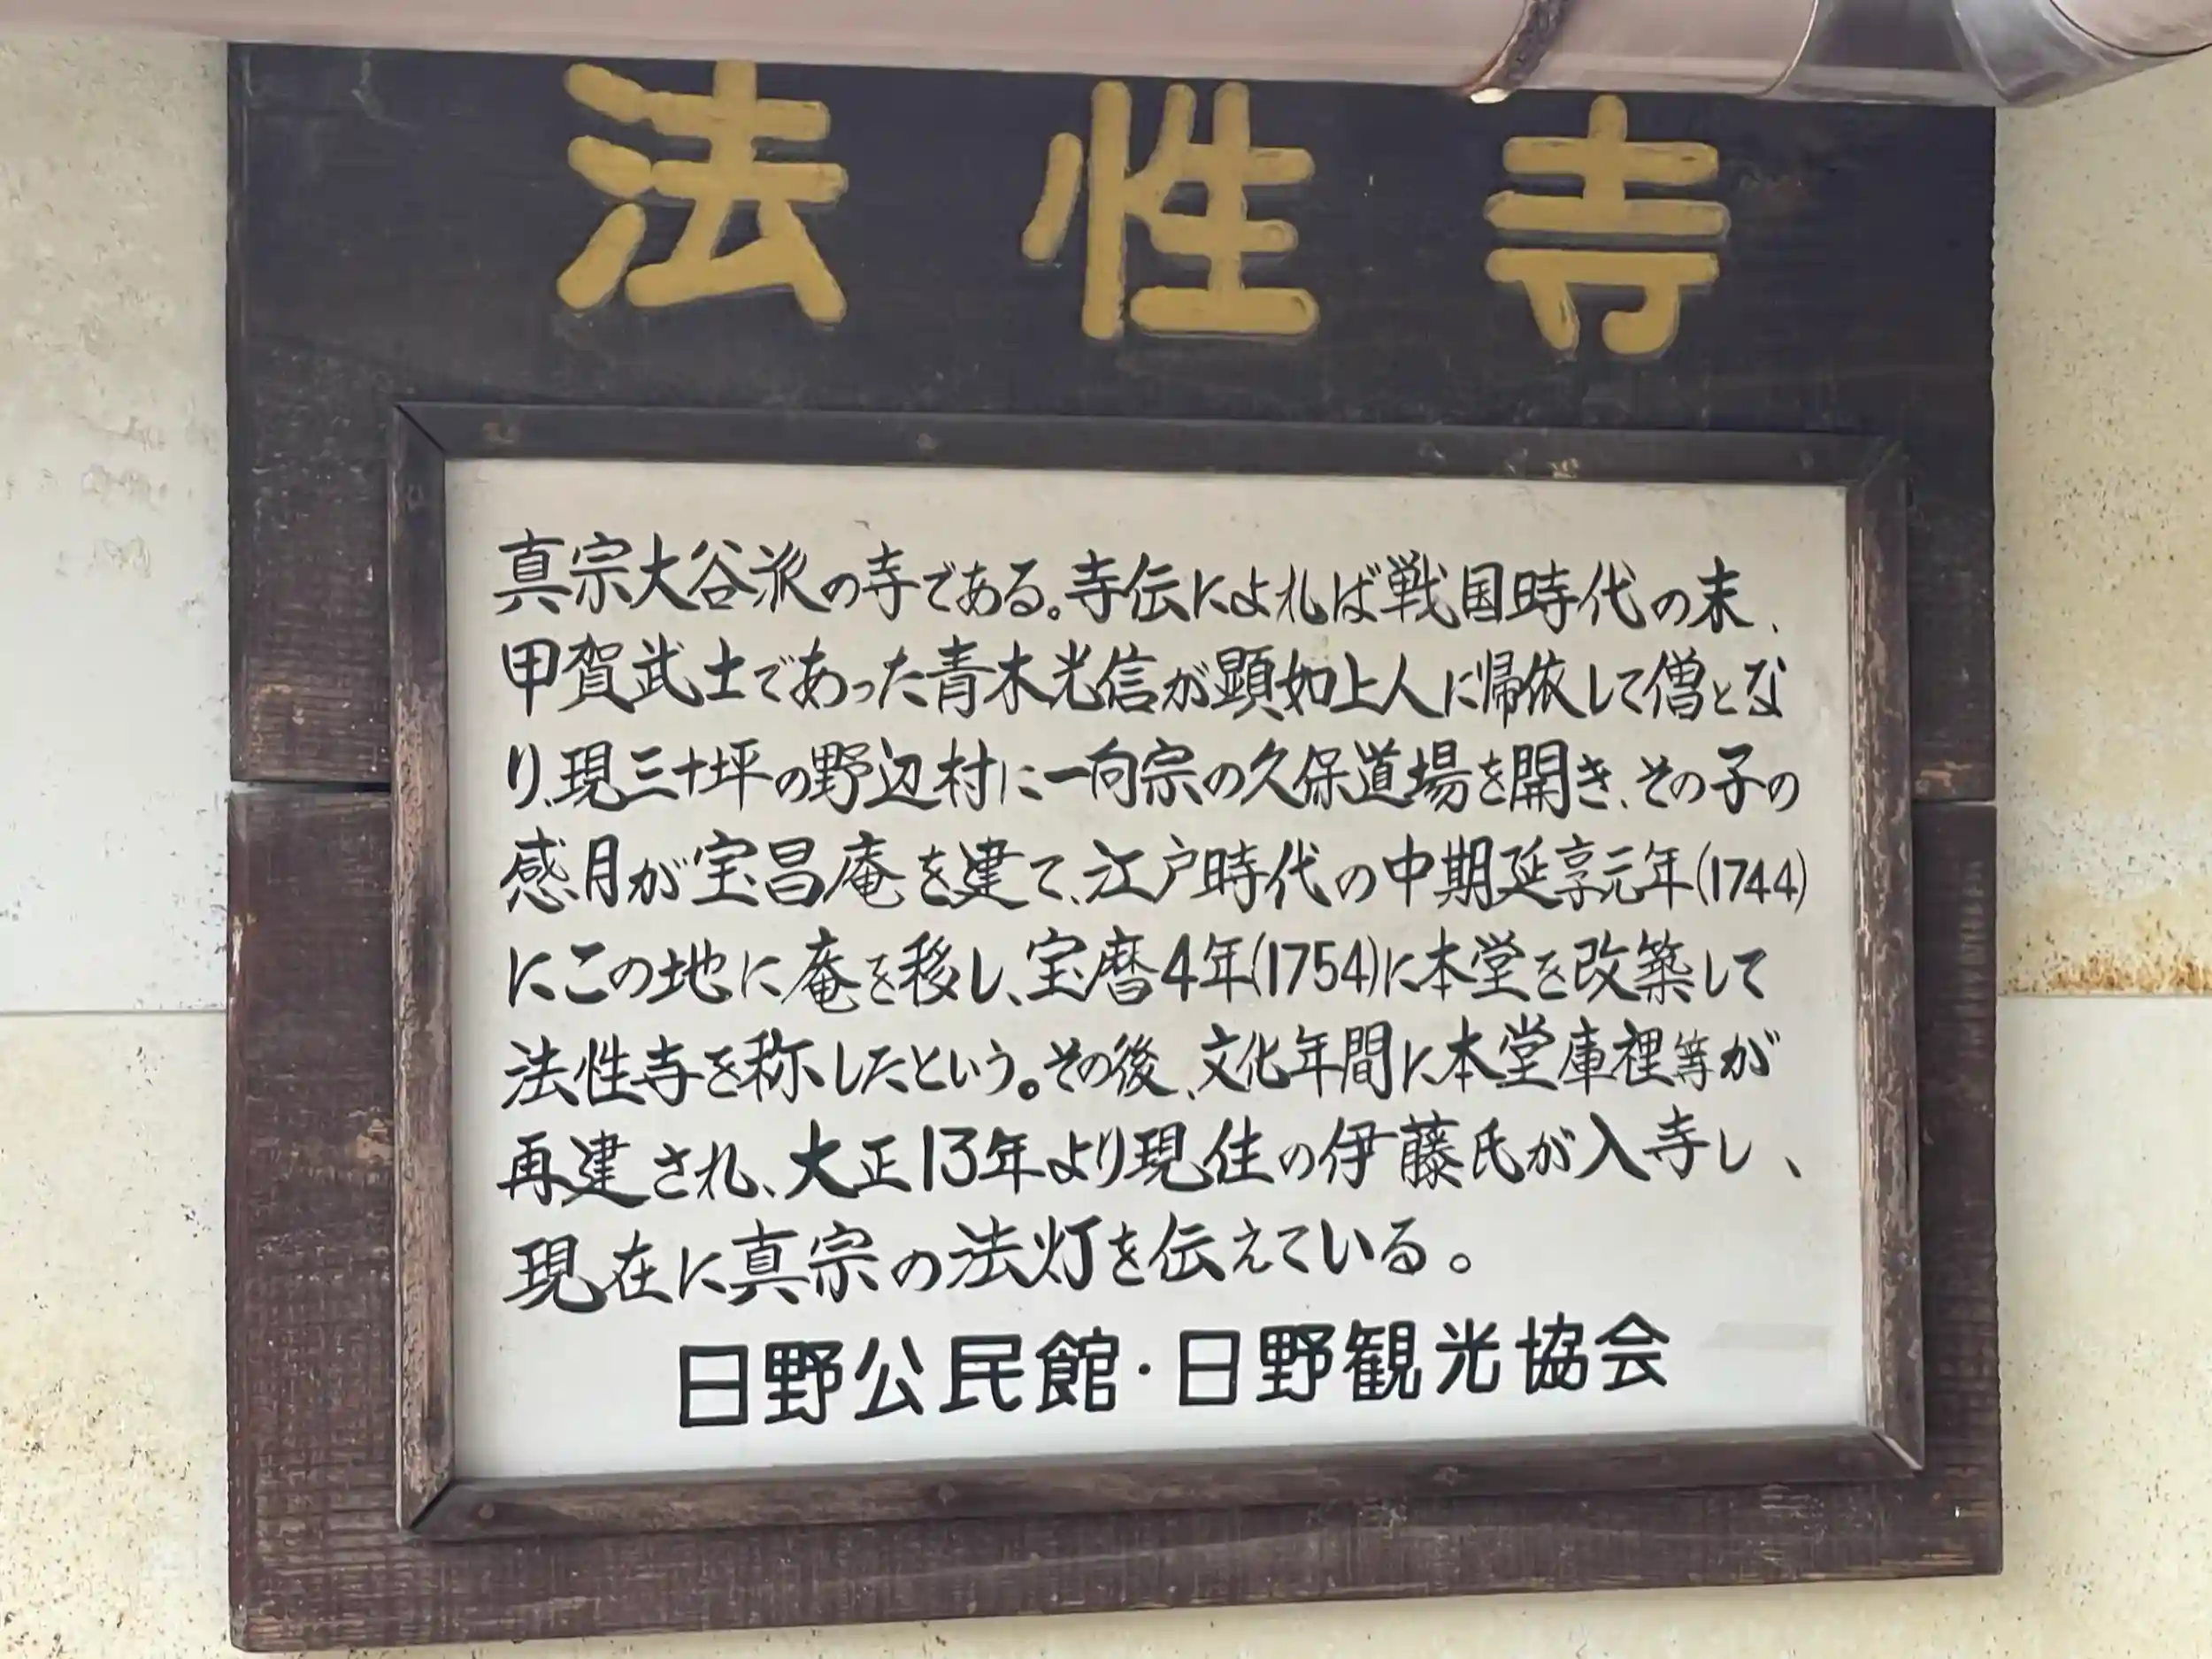 法性寺
真宗大谷派の寺である。寺伝によれば戦国時代の末、
甲賀武士であった青木光信が顕如上人に帰依して僧とな
り、現三十坪の野辺村に一向宗の久保道場を開き、その子の
感月が宝昌庵を建て、江戸時代の中期延享元年(1744)
にこの地に庵を移し、宝暦4年(1754)に本堂を改築して
法性寺を称したという。その後、文化年間に本堂庫裡等が
再建され、大正13年より現住の伊藤氏が入寺し、
現在に真宗の法灯を伝えている。
日野公民館・日野観光協会